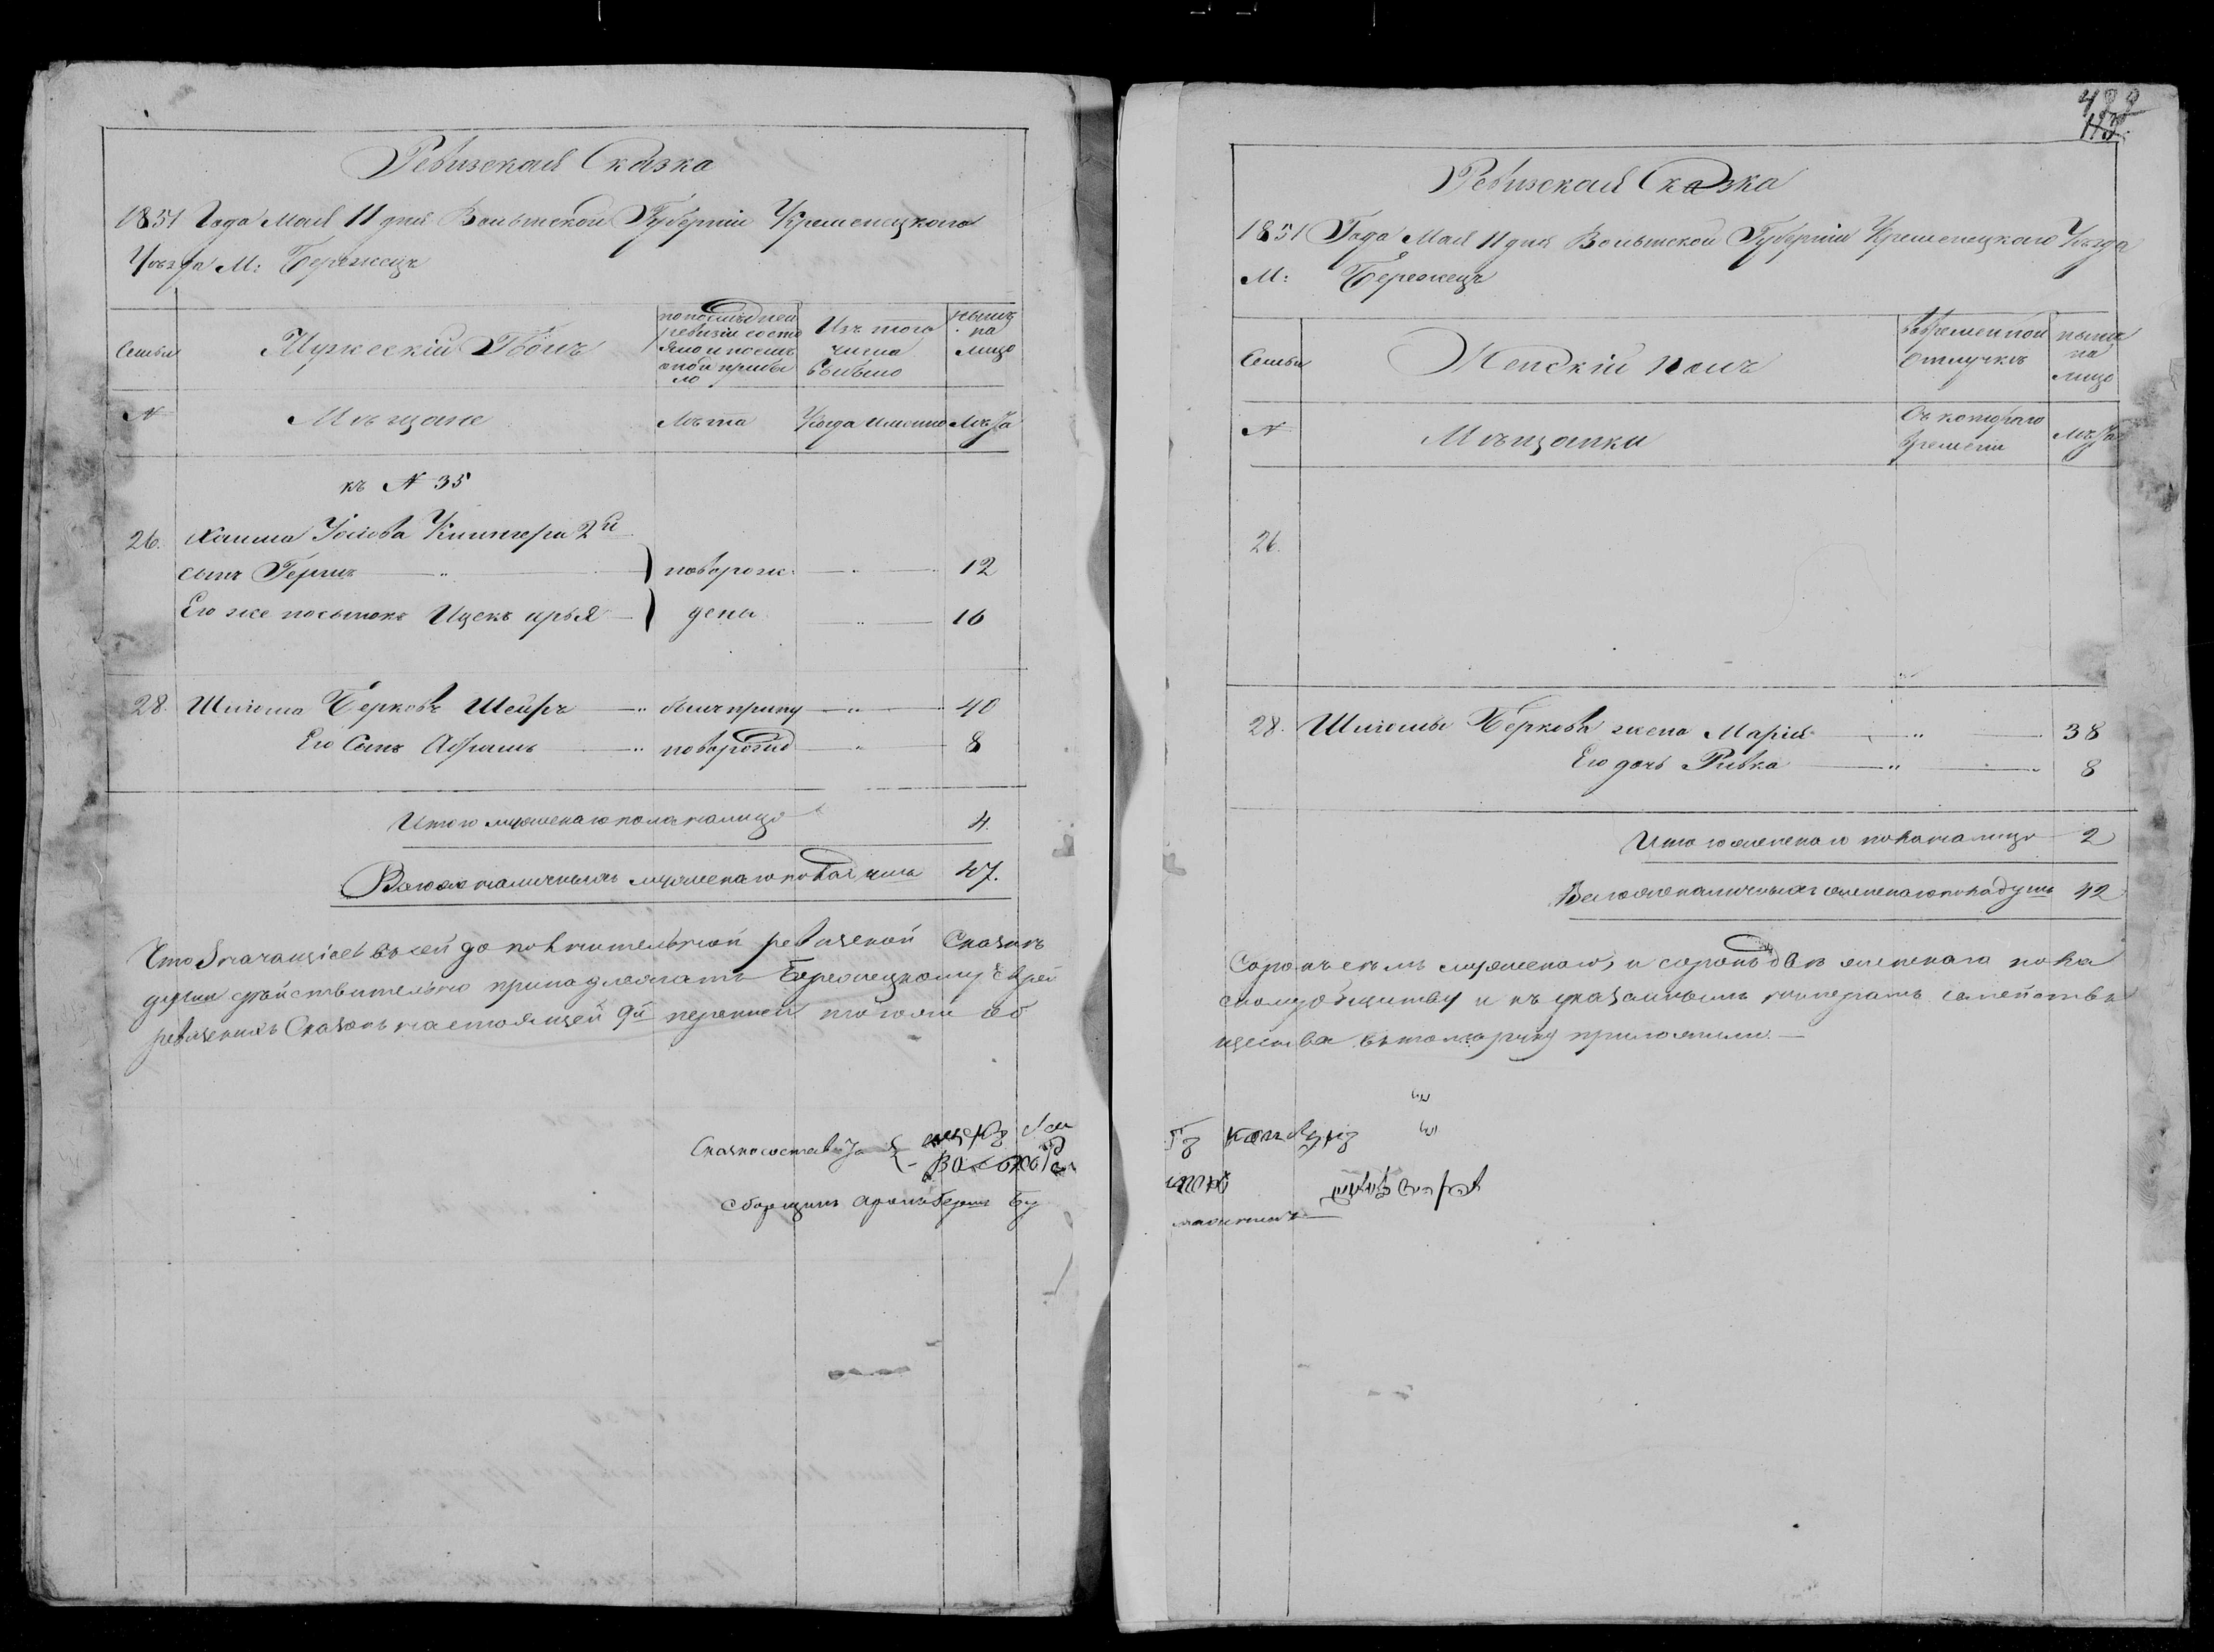 Ревизская Сказка
1851 Года Мая 11 дня Волынской Губерніи Кременецкаго
Уѣзда М: Бережецъ
Семьи
Мужескій Полъ
по послѣдней ревизіи состояло и послѣ оной прибыло
Изъ того числа выбыло
нынѣ на лицо
№
Мѣщане
Лѣта
Когда именно
Лѣта
къ № 35
26. Хаима
2й
сынъ Гершъ " новорож- " 12
Его же Ицекъ арья дены " 16
28. Шліома Берковъ " " 40
Его Сынъ Абрамъ " новорожд " 8
Итого мужескаго пола налицо 4.
Всего же наличныхъ мужескаго пола душъ 47.
Что значащіеся въ сей дополнительной ревизской Сказкѣ
души дѣйствительно принадлежатъ Бережецкому Еврей
ревизскихъ Сказокъ настоящей 9й переписи
Сборщикъ
422
113.
Ревизская Сказка
1851 Года Мая 11 дня Волынской Губерніи Кременецкаго Уѣзда
М: Бережецъ
Семьи
Женскій полъ
Во временной отлучкѣ
нынѣ на лицо
№
Мѣщанки
Съ котораго времени
Лѣта
26.
28. Шліомы Беркова жена Марія " 38
Его дочь Ривка " 8
Итого женскаго пола налицо 2
Всего же наличныхъ женскаго пола душъ 42
Сорокъ семь мужескаго, и сорокъ двѣ женскаго пола
скому обществу и къ указаннымъ номерамъ семействъ
щества приложили.